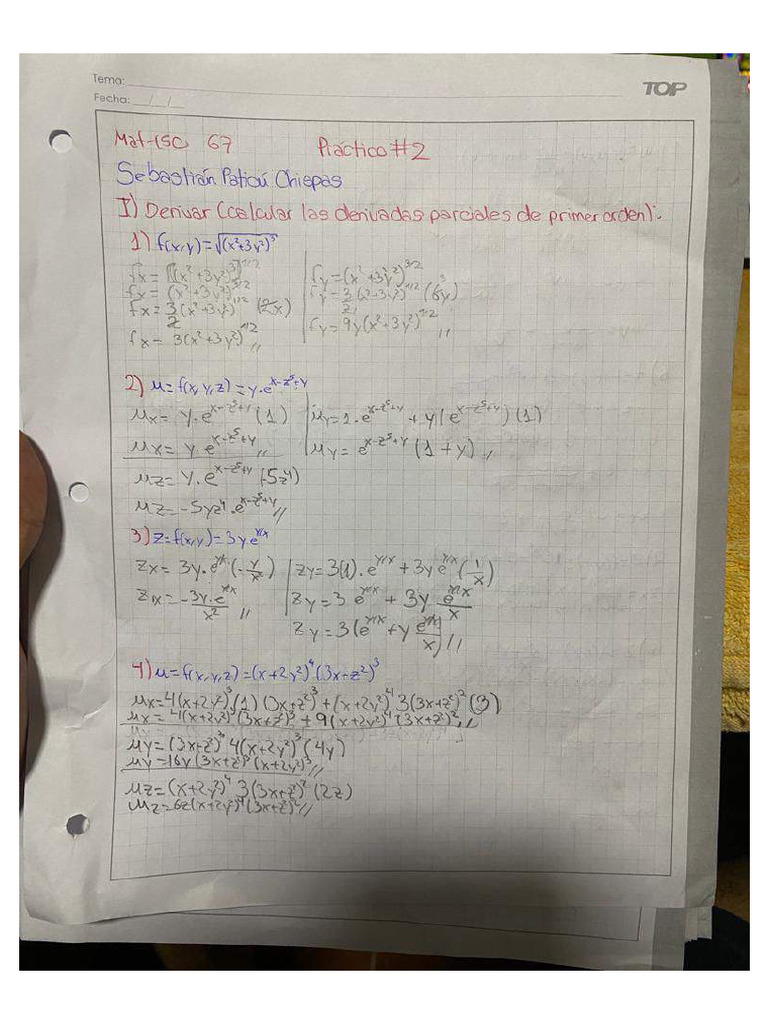 Tema:
TOP
Fecha: / /
Mat-ISC 67 Práctico #2
Sebastián Paticú Chiepas
I) Derivar (calcular las derivadas parciales de primer orden):
1) f(x,y)=√(x²+3y²)³
fx=[(x²+3y²)³]^1/2
fx=(x²+3y²)^3/2
fx=3/2(x²+3y²)^1/2 (2x)
fx= 3(x²+3y²)^1/2 //
fy=(x²+3y²)^3/2
fy=3/2(x²+3y²)^1/2 (6y)
fy=9y(x²+3y²)^1/2 //
2) u=f(x,y,z)=y·e^x-z⁵+y
ux=y·e^x-z⁵+y (1)
ux=y·e^x-z⁵+y //
uy=1·e^x-z⁵+y + y(e^x-z⁵+y)(1)
uy=e^x-z⁵+y (1+y) //
uz=y·e^x-z⁵+y (-5z⁴)
uz=-5yz⁴·e^x-z⁵+y //
3) z=f(x,y)=3ye^y/x
zx=3y·e^y/x(-y/x²)
zx=-3y·e^y/x/x² //
zy=3(1)·e^y/x+3ye^y/x(1/x)
zy=3e^y/x+3y e^y/x/x
zy=3(e^y/x+y e^y/x/x) //
4) u=f(x,y,z)=(x+2y²)⁴(3x+z²)³
ux=4(x+2y²)³(1)(3x+z²)³+(x+2y²)⁴3(3x+z²)²(3)
ux=4(x+2y²)³(3x+z²)³+9(x+2y²)⁴(3x+z²)² //
uy=(3x+z²)³4(x+2y²)³(4y)
uy=16y(3x+z²)³(x+2y²)³ //
uz=(x+2y²)⁴3(3x+z²)²(2z)
uz=6z(x+2y²)⁴(3x+z²)² //